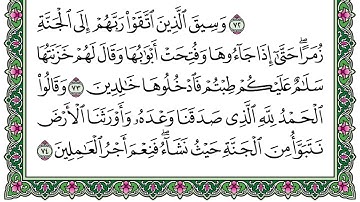 ٧٢ وَسِيقَ ٱلَّذِينَ ٱتَّقَوْا۟ رَبَّهُمْ إِلَى ٱلْجَنَّةِ
زُمَرًا ۖ حَتَّىٰٓ إِذَا جَآءُوهَا وَفُتِحَتْ أَبْوَٰبُهَا وَقَالَ لَهُمْ خَزَنَتُهَا
سَلَـٰمٌ عَلَيْكُمْ طِبْتُمْ فَٱدْخُلُوهَا خَـٰلِدِينَ ٧٣ وَقَالُوا۟
ٱلْحَمْدُ لِلَّهِ ٱلَّذِى صَدَقَنَا وَعْدَهُۥ وَأَوْرَثَنَا ٱلْأَرْضَ
نَتَبَوَّأُ مِنَ ٱلْجَنَّةِ حَيْثُ نَشَآءُ ۖ فَنِعْمَ أَجْرُ ٱلْعَـٰمِلِينَ ٧٤